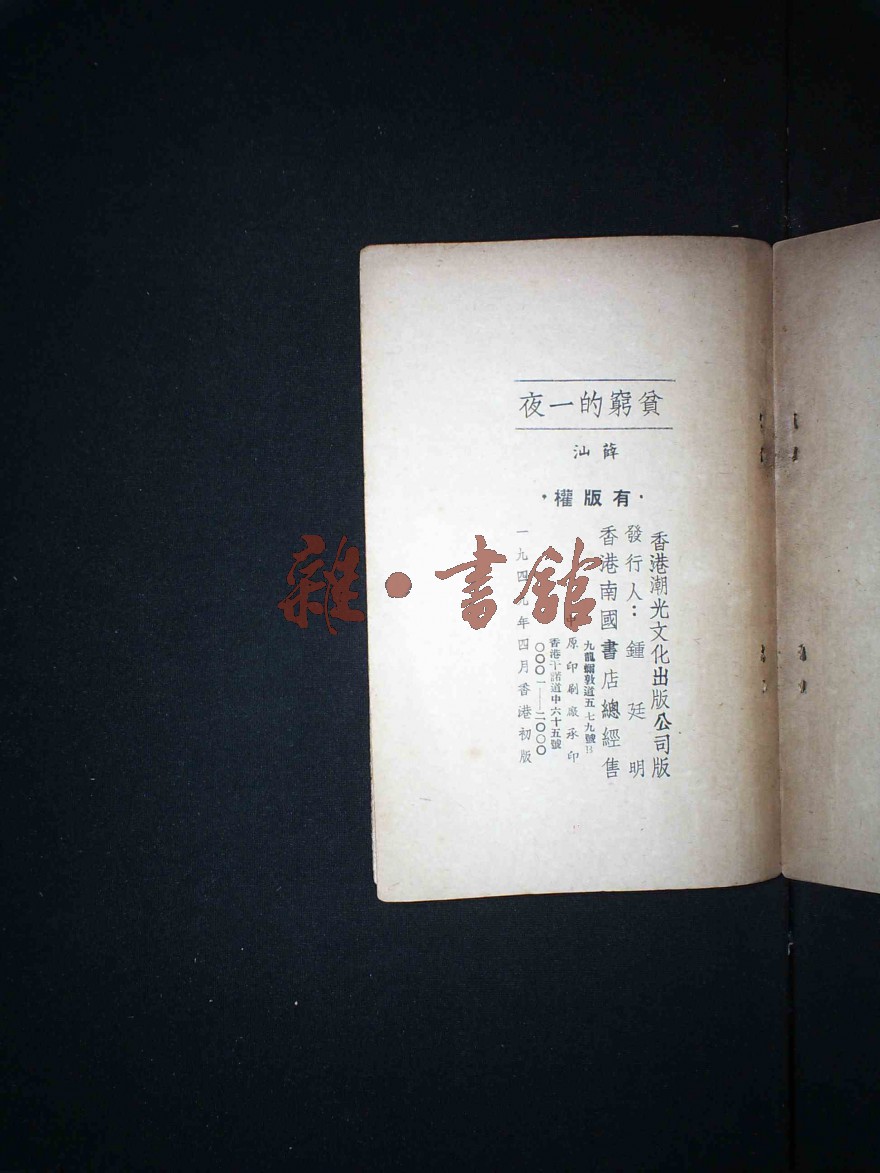 貧窮的一夜
薛汕
·有版權·
香港潮光文化出版公司版
發行人：鍾廷明
香港南國書店總經售
九龍彌敦道五七九號B
原印刷廠承印
香港干諾道中六十五號
〇〇〇一——二〇〇〇
一九四九年四月香港初版
雜·書館